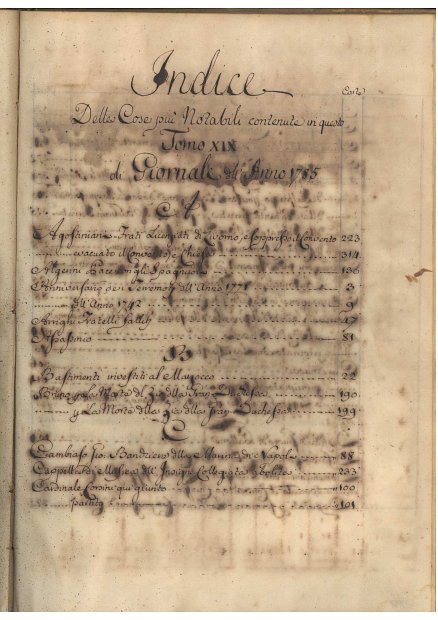 Indice
Carte
Delle Cose più Notabili contenute in questo
Tomo XIX
di Giornale dell' Anno 1785
A
Agostiniani Frati Licenziati di Livorno, e soppresso il Convento 223
evacuato il Convento, e Chiesa 314
Algerini Pace con gli Spagnuoli 136
Anniversario dei Terremoti dell' Anno 1771 3
dell' Anno 1742 9
Arrighi Fratelli falliti 17
Assassinio 81
B
Bastimenti investiti al 22
Bruno per la Morte del Zio della Gran Duchessa 190
per La Morte della Zia della Gran Duchessa 199
C
Cambiaso Gio. Bandiera della Marina di Napoli 88
Cappella di Musica dell' Insigne Collegiata abolita 233
Cardinale Corsini qui giunto 100
partito 101